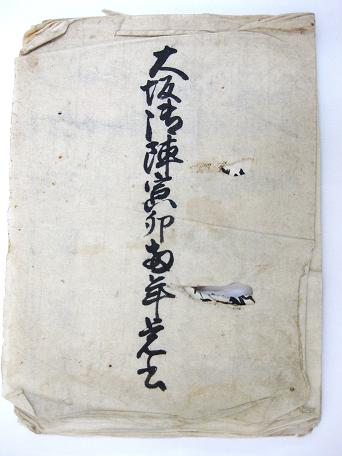 大坂御陣寅卯両年覚書